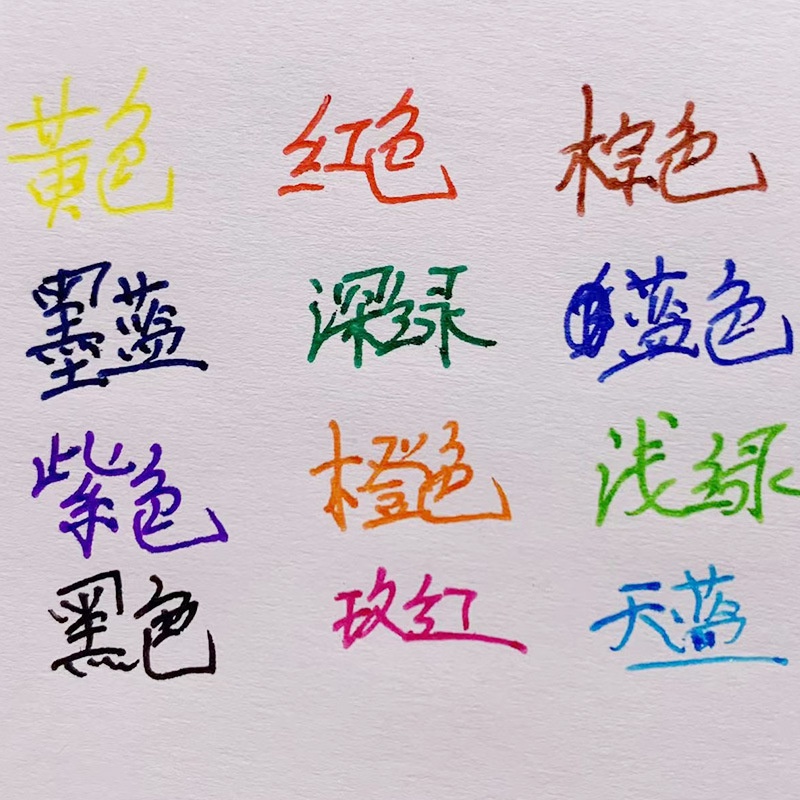 黄色 红色 棕色
墨蓝 深绿 蓝色
紫色 橙色 浅绿
黑色 玫红 天蓝